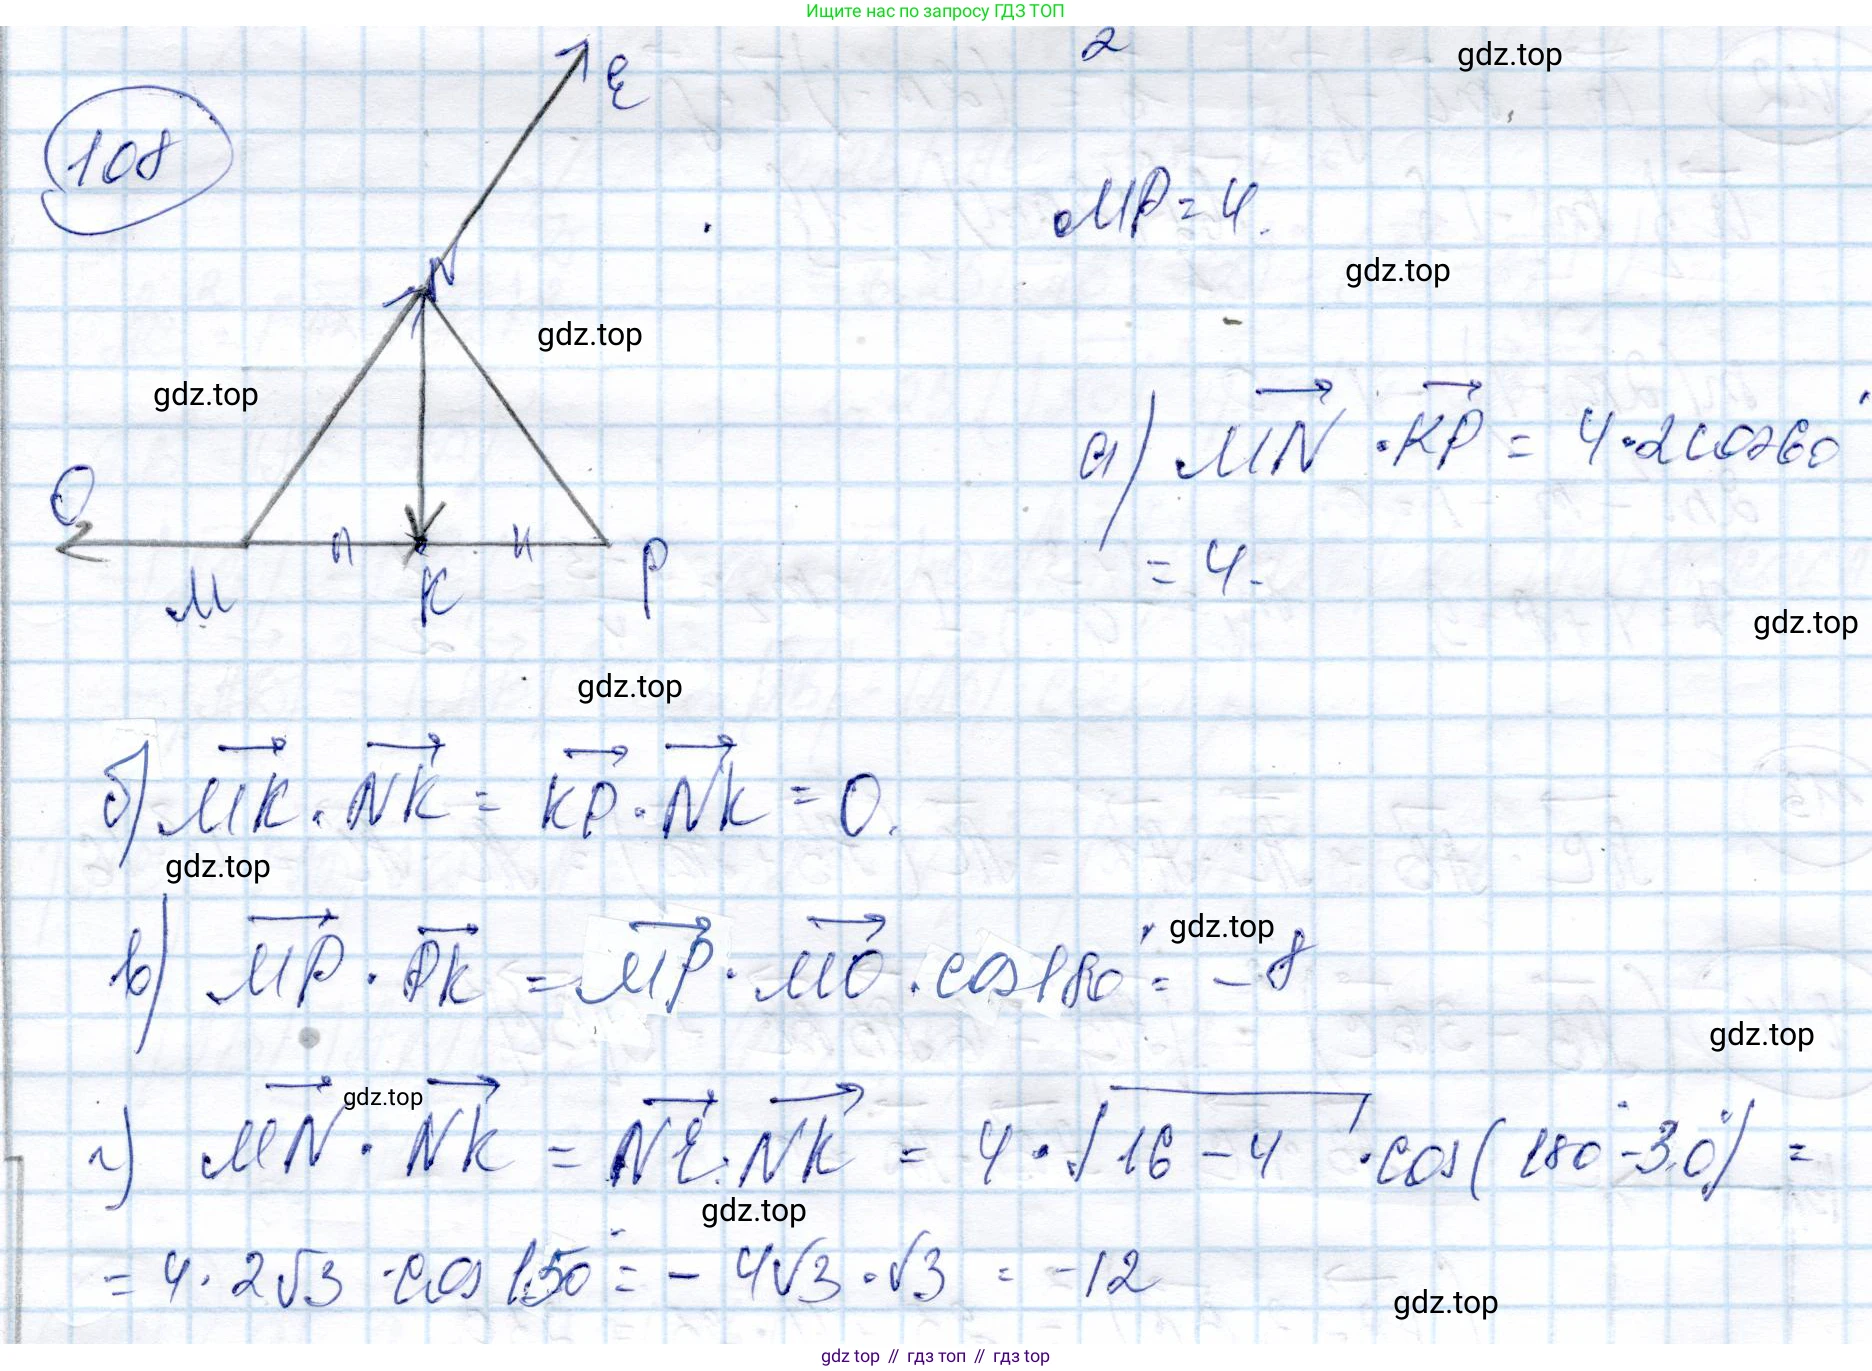 Ищите нас по запросу ГДЗ ТОП
2
gdz.top
108
E
MP = 4.
N
gdz.top
gdz.top
gdz.top
а) MN · KP = 4 · 2 cos 60°
O
= 4.
M K P
gdz.top
gdz.top
б) MK · NK = KP · NK = 0.
gdz.top
в) MP · PK = MP · MO · cos 180° = -8
gdz.top
gdz.top
г) MN · NK = NE · NK = 4 · √16 - 4 · cos (180° - 30°) =
gdz.top
gdz.top
= 4 · 2√3 · cos 150° = - 4√3 · √3 = -12
gdz.top
gdz.top // гдз топ // gdz.top